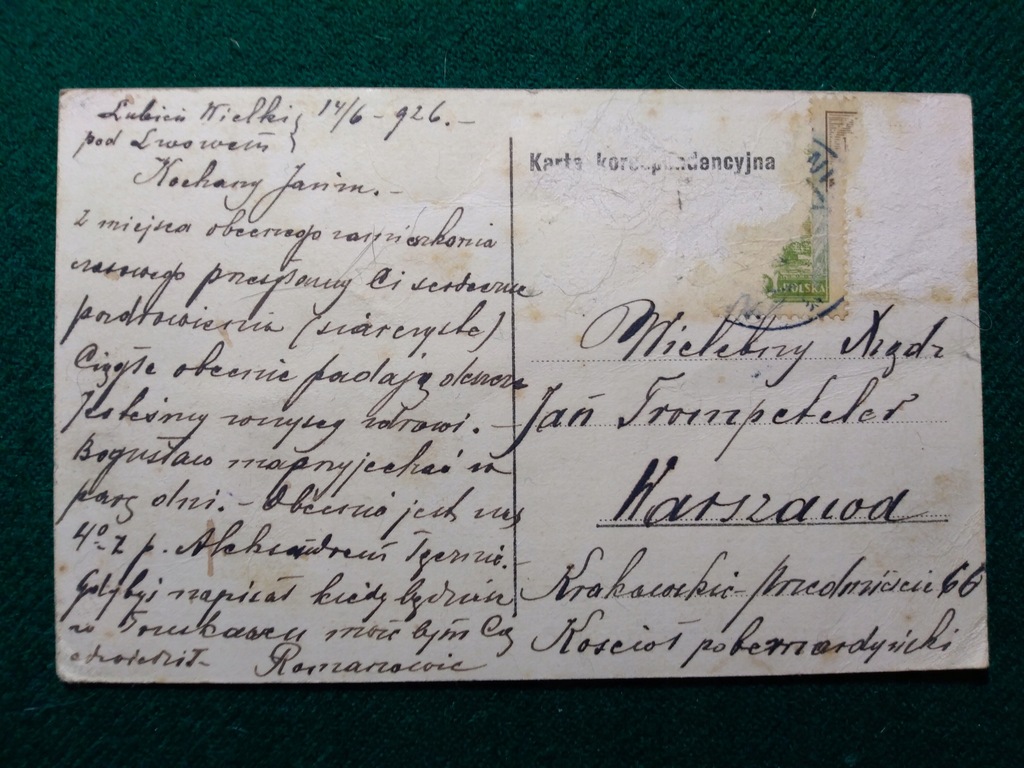 Lubień Wielki } 14/6 - 926. -
pod Lwowem }
Kochany Janim. -
Z miejsca obecnego zamieszkania
czasowego przesyłamy Ci serdeczne
pozdrowienia (siarczyste)
Ciągle obecnie padają deszcze
Jesteśmy wszyscy zdrowi. -
Bogusław ma przyjechać w
parę dni. - Obecnie jest nas
4º - z p. Aleksandrem
Gdybyś napisał kiedy będziesz
w Truskawcu może bym Cię
odwiedził - Romanowie
Karta korespondencyjna
POLSKA
Wielebny Ksiądz
Jan Trompeteler
Warszawa
Krakowskie - Przedmieście 66
Kościoł pobernardyński